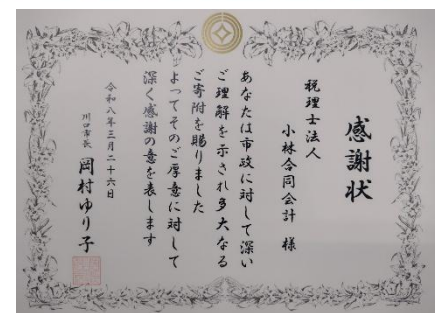 感謝状
税理士法人
小林合同会計 様
あなたは市政に対して深い
ご理解を示され多大なる
ご寄附を賜りました
よってそのご厚意に対して
深く感謝の意を表します
令和八年三月二十六日
川口市長 岡村ゆり子